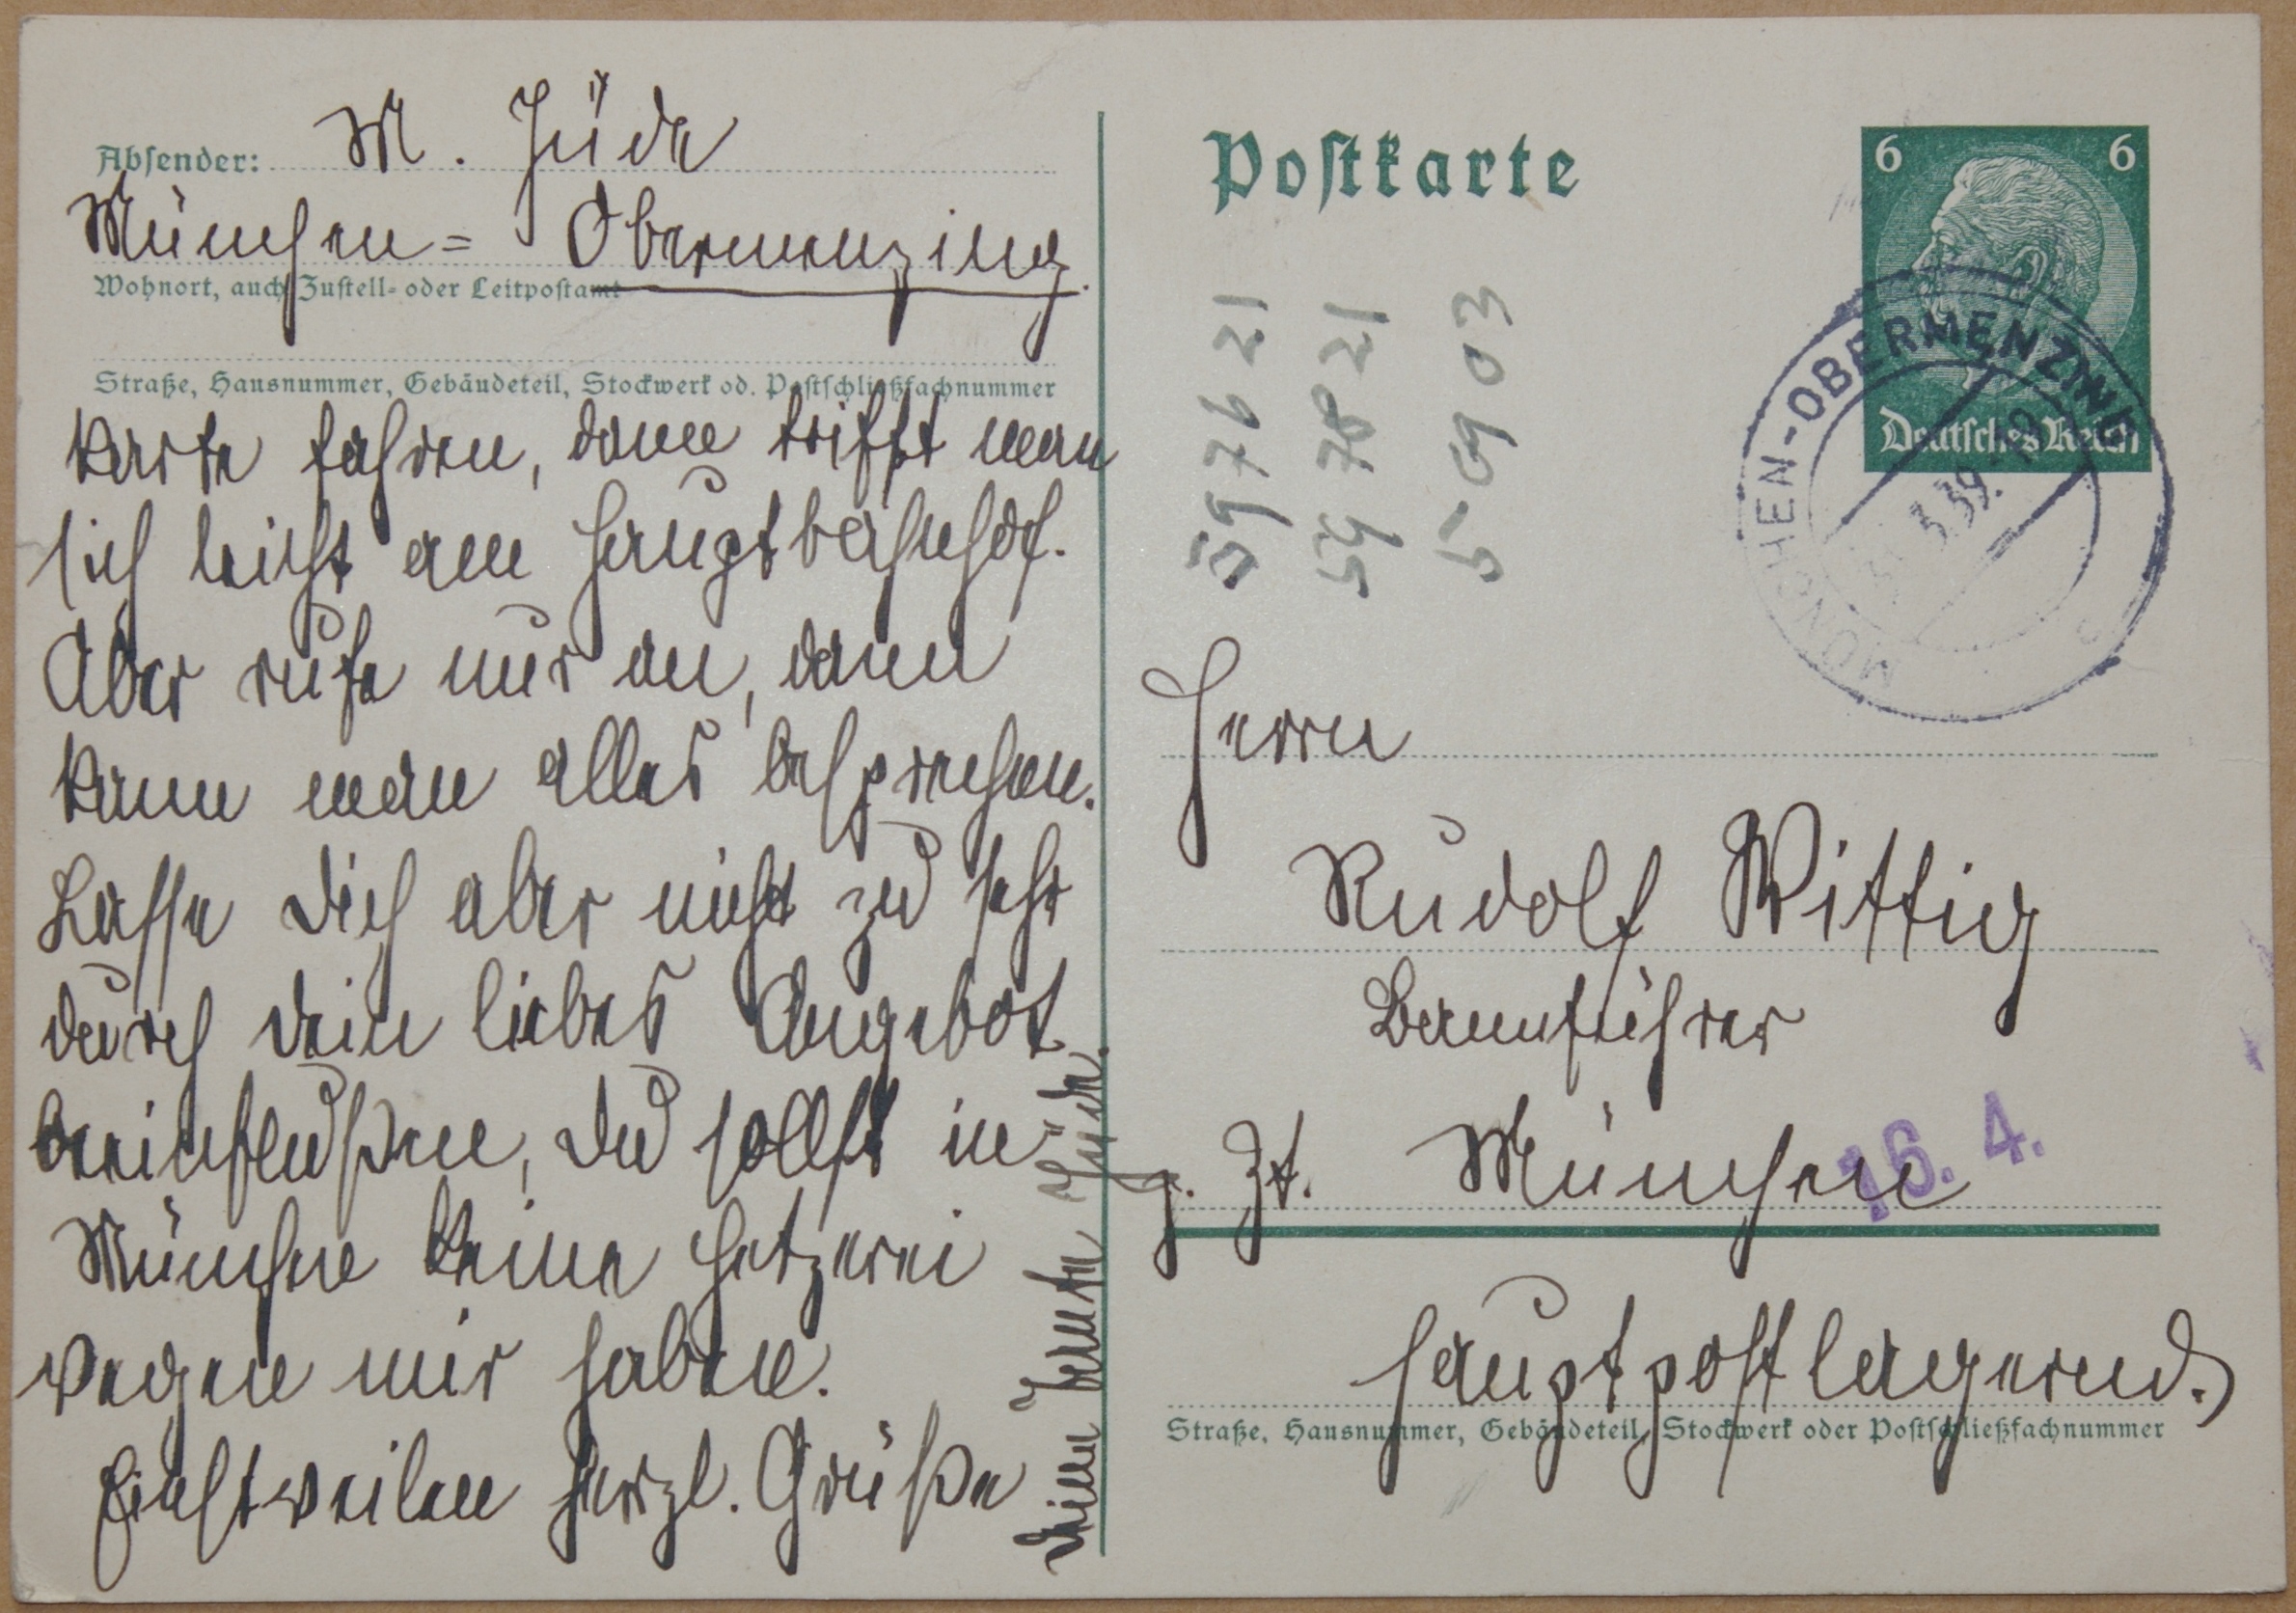 Absender: M. Jüde
München = Obermenzing.
Wohnort, auch Zustell- oder Leitpostamt
Straße, Hausnummer, Gebäudeteil, Stockwerk od. Postschließfachnummer
karte fahren, dann trifft man
sich leicht am Hauptbahnhof.
Aber rufe nur an, dann
kann man alles besprechen.
Lasse Dich aber nicht zu sehr
durch dein liebes Angebot
beeinflußen, Du sollst in
München keine Hetzerei
wegen mir haben.
Einstweilen herzl. Grüße
Jüde.
Postkarte
6 6
Deutsches Reich
MÜNCHEN-OBERMENZING
3.39.
59 76 21
59 78 21
5 09 03
Herrn
Rudolf Wittig
Bannführer
z. Zt. München
16. 4.
hauptpostlagernd.
Straße, Hausnummer, Gebäudeteil, Stockwerk oder Postschließfachnummer